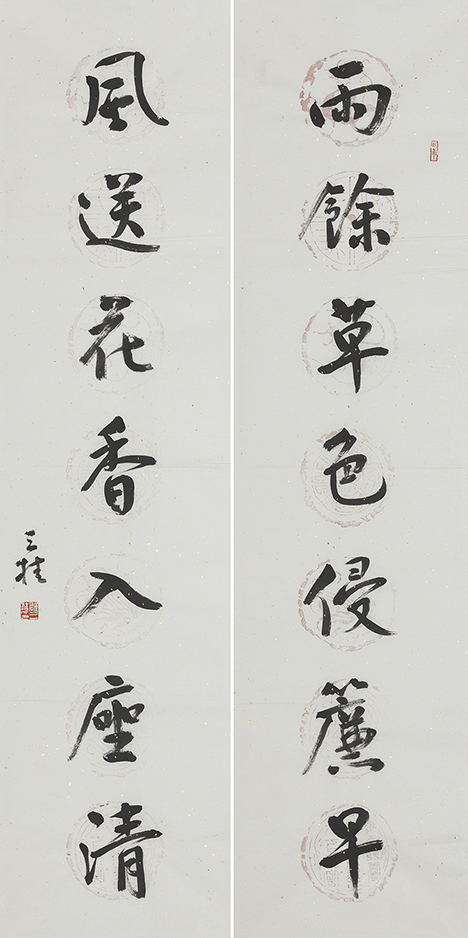 雨餘草色侵簾早
風送花香入座清